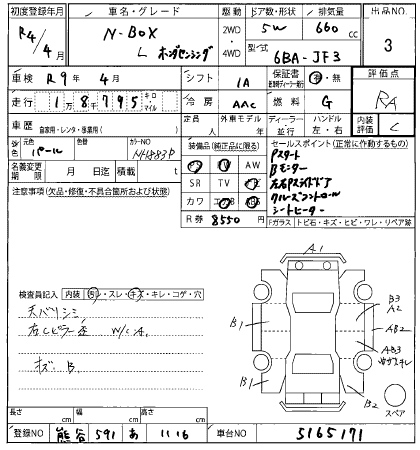 初度登録年月 車名・グレード 駆動 ドア数・形状 排気量 出品NO.
R4/4月 N-BOX 2WD 4WD 5W 660 cc 3
L ホンダセンシング 型式 6BA-JF3
車検 R9年 4月 シフト IA 保証書 有・無 評価点
走行 1万8千795 キロ・マイル 冷房 AAC 燃料 G RA
車歴 自家用・レンタ・事業用( ) 定員 人 外車モデル 年 ディーラー 並行 ハンドル 左・右 内装評価 C
元色 パール 色替 カラーNO NH883P
装備品(純正品に限る) セールスポイント(正常に作動するもの)
名義変更期限 月 日迄 積載 t
AW
SR TV
カワ エアB ABS
R券 8550
Pスタート
Bモニター
左右Pスライドドア
クルーズコントロール
シートヒーター
注意事項(欠品・修復・不具合箇所および状態)
Fガラス トビ石・キズ・ヒビ・ワレ・リペア跡
検査員記入 内装 ヨレ・スレ・キズ・キレ・コゲ・穴
天バリシミ
右Cピラー歪 W/C A.
キズ: B
A1
B1
B3
A2
AB2
AB3
B1
B2
スペア
長さ cm 幅 cm 高さ cm
登録NO 熊谷 591 あ 1116 車台NO 5165171